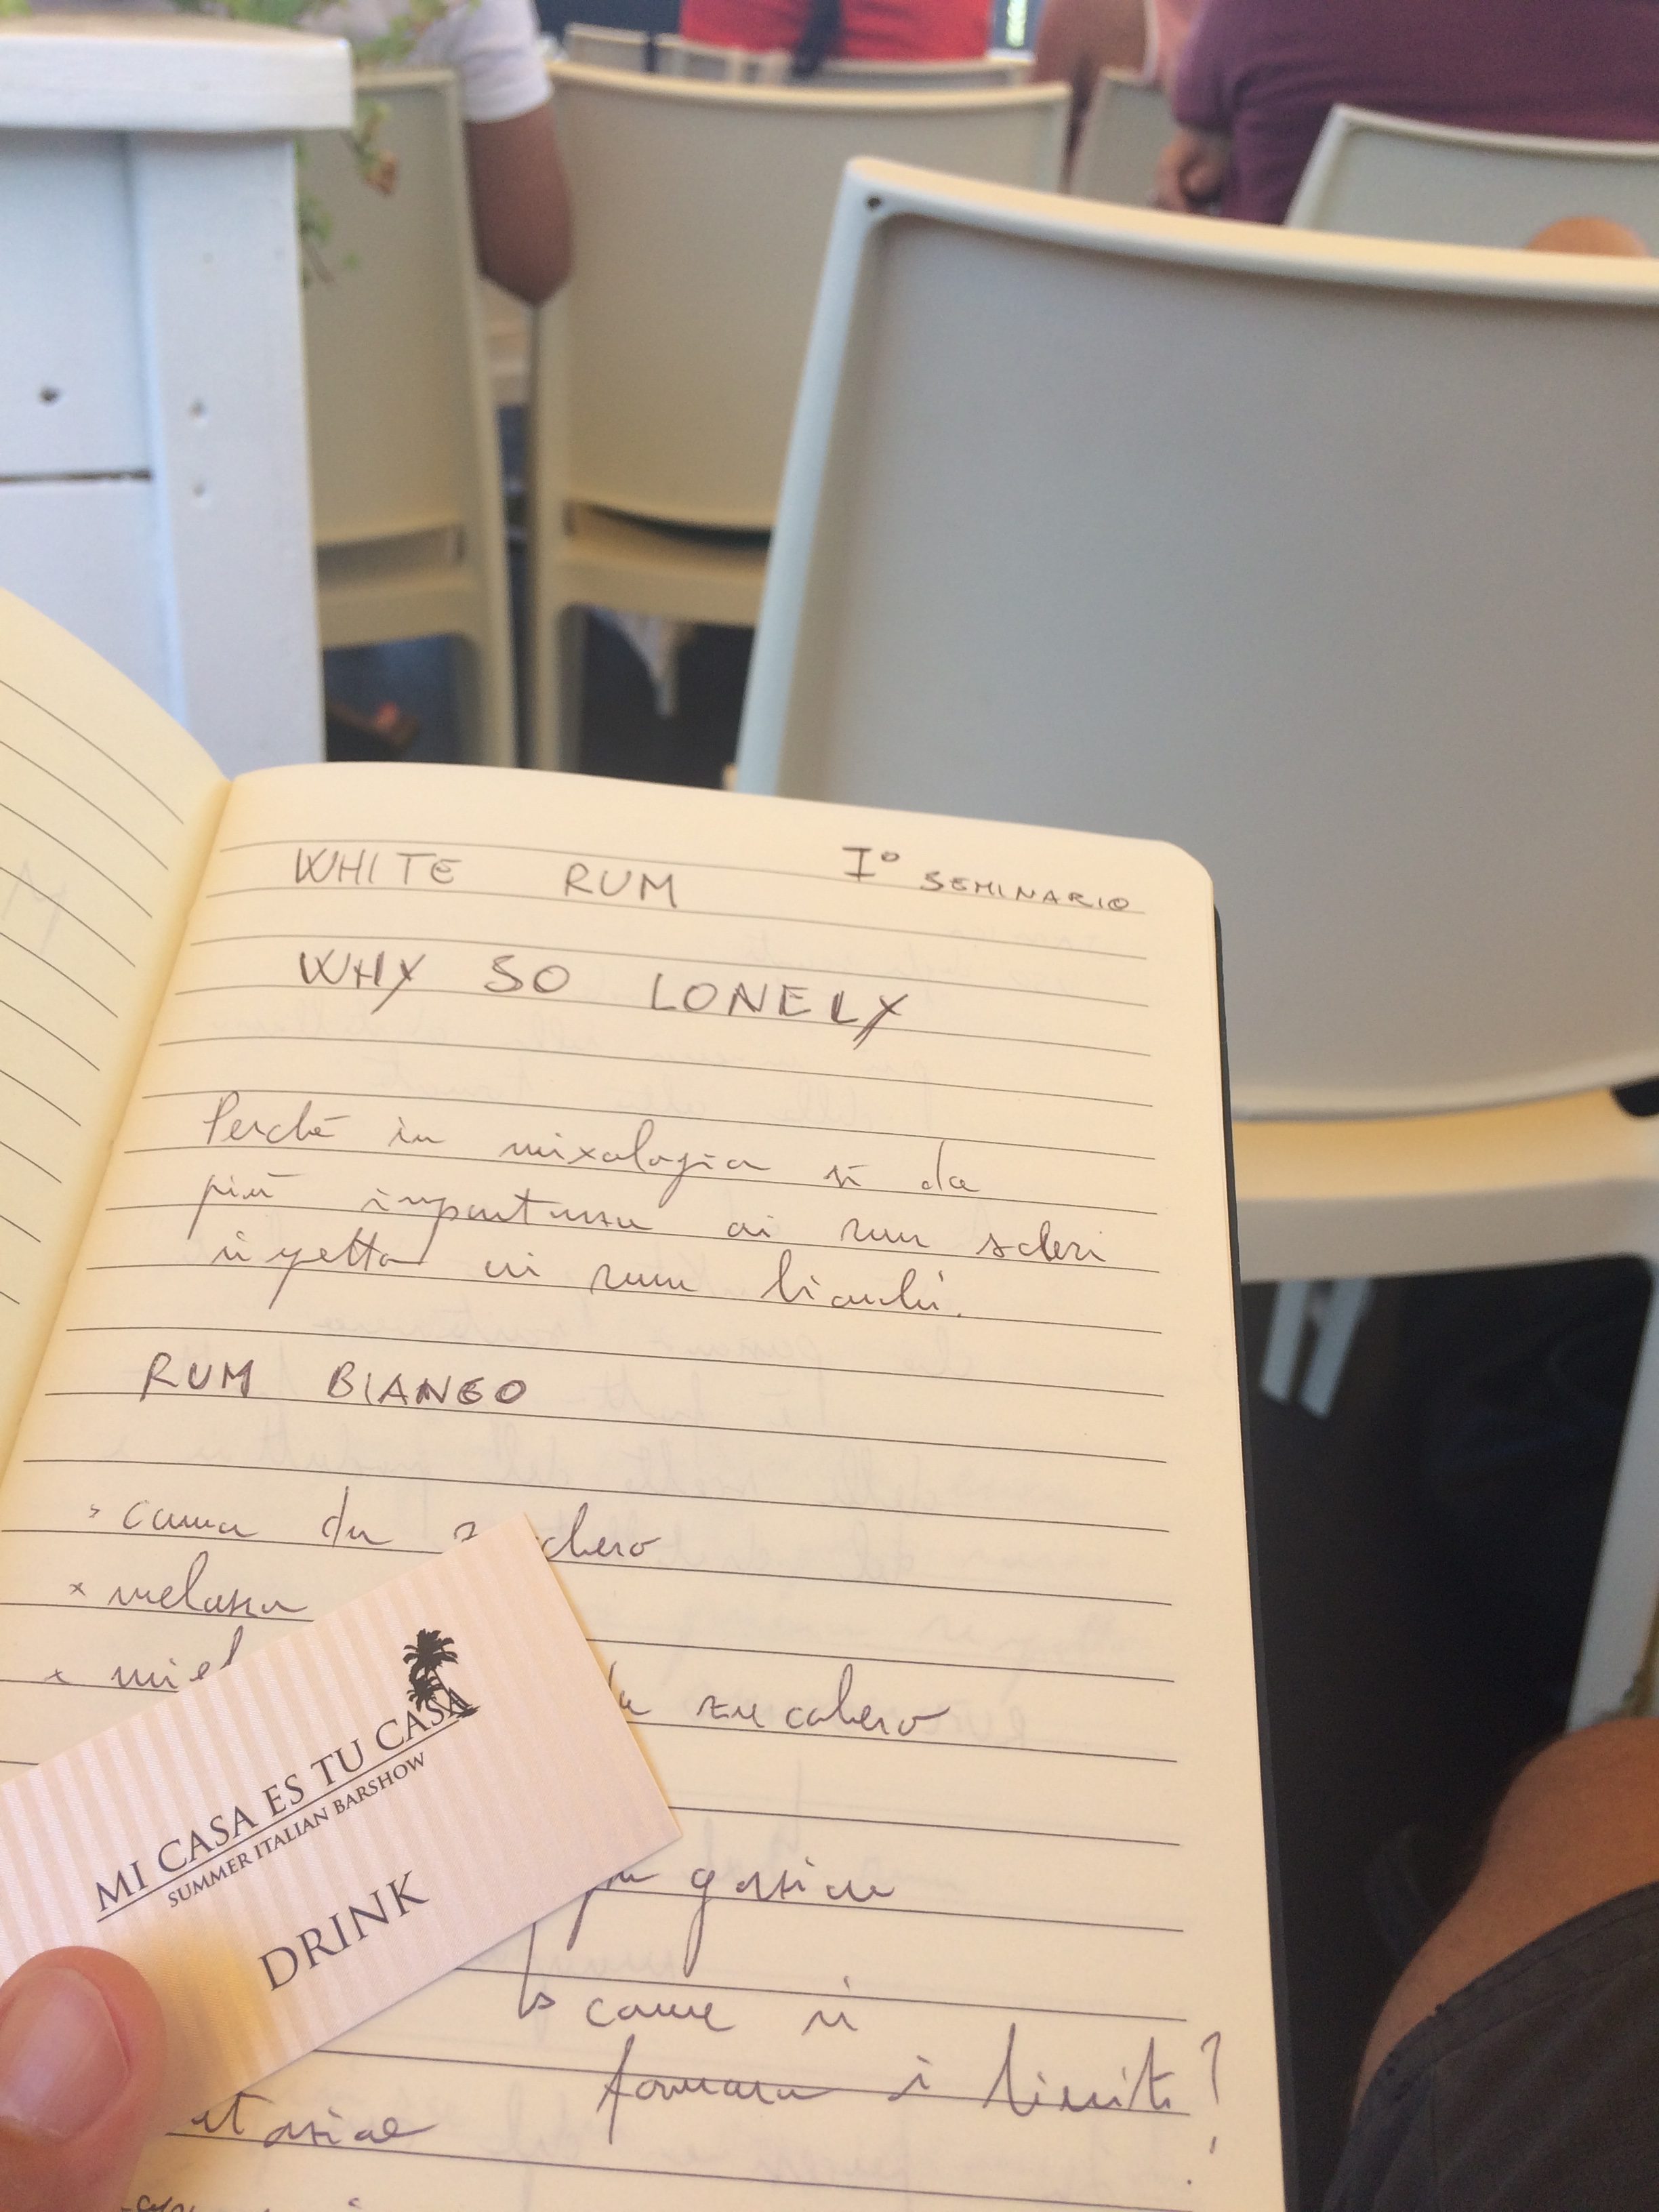 WHITE RUM I° SEMINARIO
WHY SO LONELY
Perché in mixologia si da
più importanza ai rum scuri
rispetto ai rum bianchi.
RUM BIANCO
canna da
melassa
zucchero
come si
formano i limiti ?
MI CASA ES TU CASA
SUMMER ITALIAN BARSHOW
DRINK